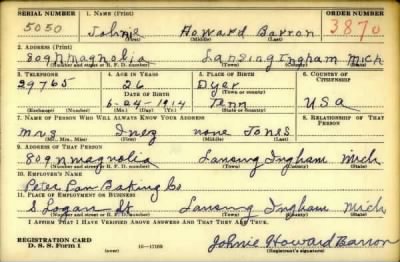 SERIAL NUMBER 1. NAME (Print) ORDER NUMBER
5050 Johnie Howard Barron 3870
(First) (Middle) (Last)
2. ADDRESS (Print)
809 N Magnolia Lansing Ingham Mich
(Number and street or R. F. D. number) (Town) (County) (State)
3. TELEPHONE 4. AGE IN YEARS 5. PLACE OF BIRTH 6. COUNTRY OF CITIZENSHIP
29765 26 Dyer
DATE OF BIRTH (Town or county)
6-24-1914 Tenn USA
(Exchange) (Number) (Mo.) (Day) (Yr.) (State or country)
7. NAME OF PERSON WHO WILL ALWAYS KNOW YOUR ADDRESS 8. RELATIONSHIP OF THAT PERSON
Mrs Inez none Jones
(Mr., Mrs., Miss) (First) (Middle) (Last)
9. ADDRESS OF THAT PERSON
809 N Magnolia Lansing Ingham Mich
(Number and street or R. F. D. number) (Town) (County) (State)
10. EMPLOYER'S NAME
Peter Pan Baking Co
11. PLACE OF EMPLOYMENT OR BUSINESS
S. Logan St Lansing Ingham Mich
(Number and street or R. F. D. number) (Town) (County) (State)
I AFFIRM THAT I HAVE VERIFIED ABOVE ANSWERS AND THAT THEY ARE TRUE.
REGISTRATION CARD
D. S. S. Form 1 16-17105 Johnie Howard Barron
(over) (Registrant's signature)